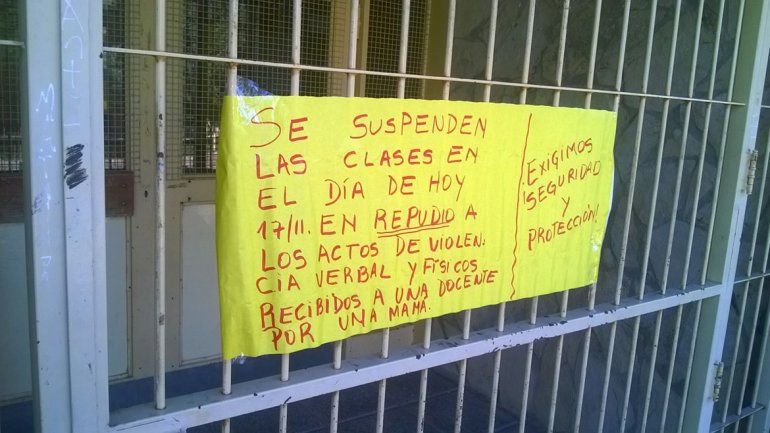 SE SUSPENDEN
LAS CLASES EN
EL DÍA DE HOY
17/11. EN REPUDIO A
LOS ACTOS DE VIOLEN.
CIA VERBAL Y FÍSICOS
RECIBIDOS A UNA DOCENTE
POR UNA MAMÁ.
¡EXIGIMOS
SEGURIDAD
Y
PROTECCIÓN!